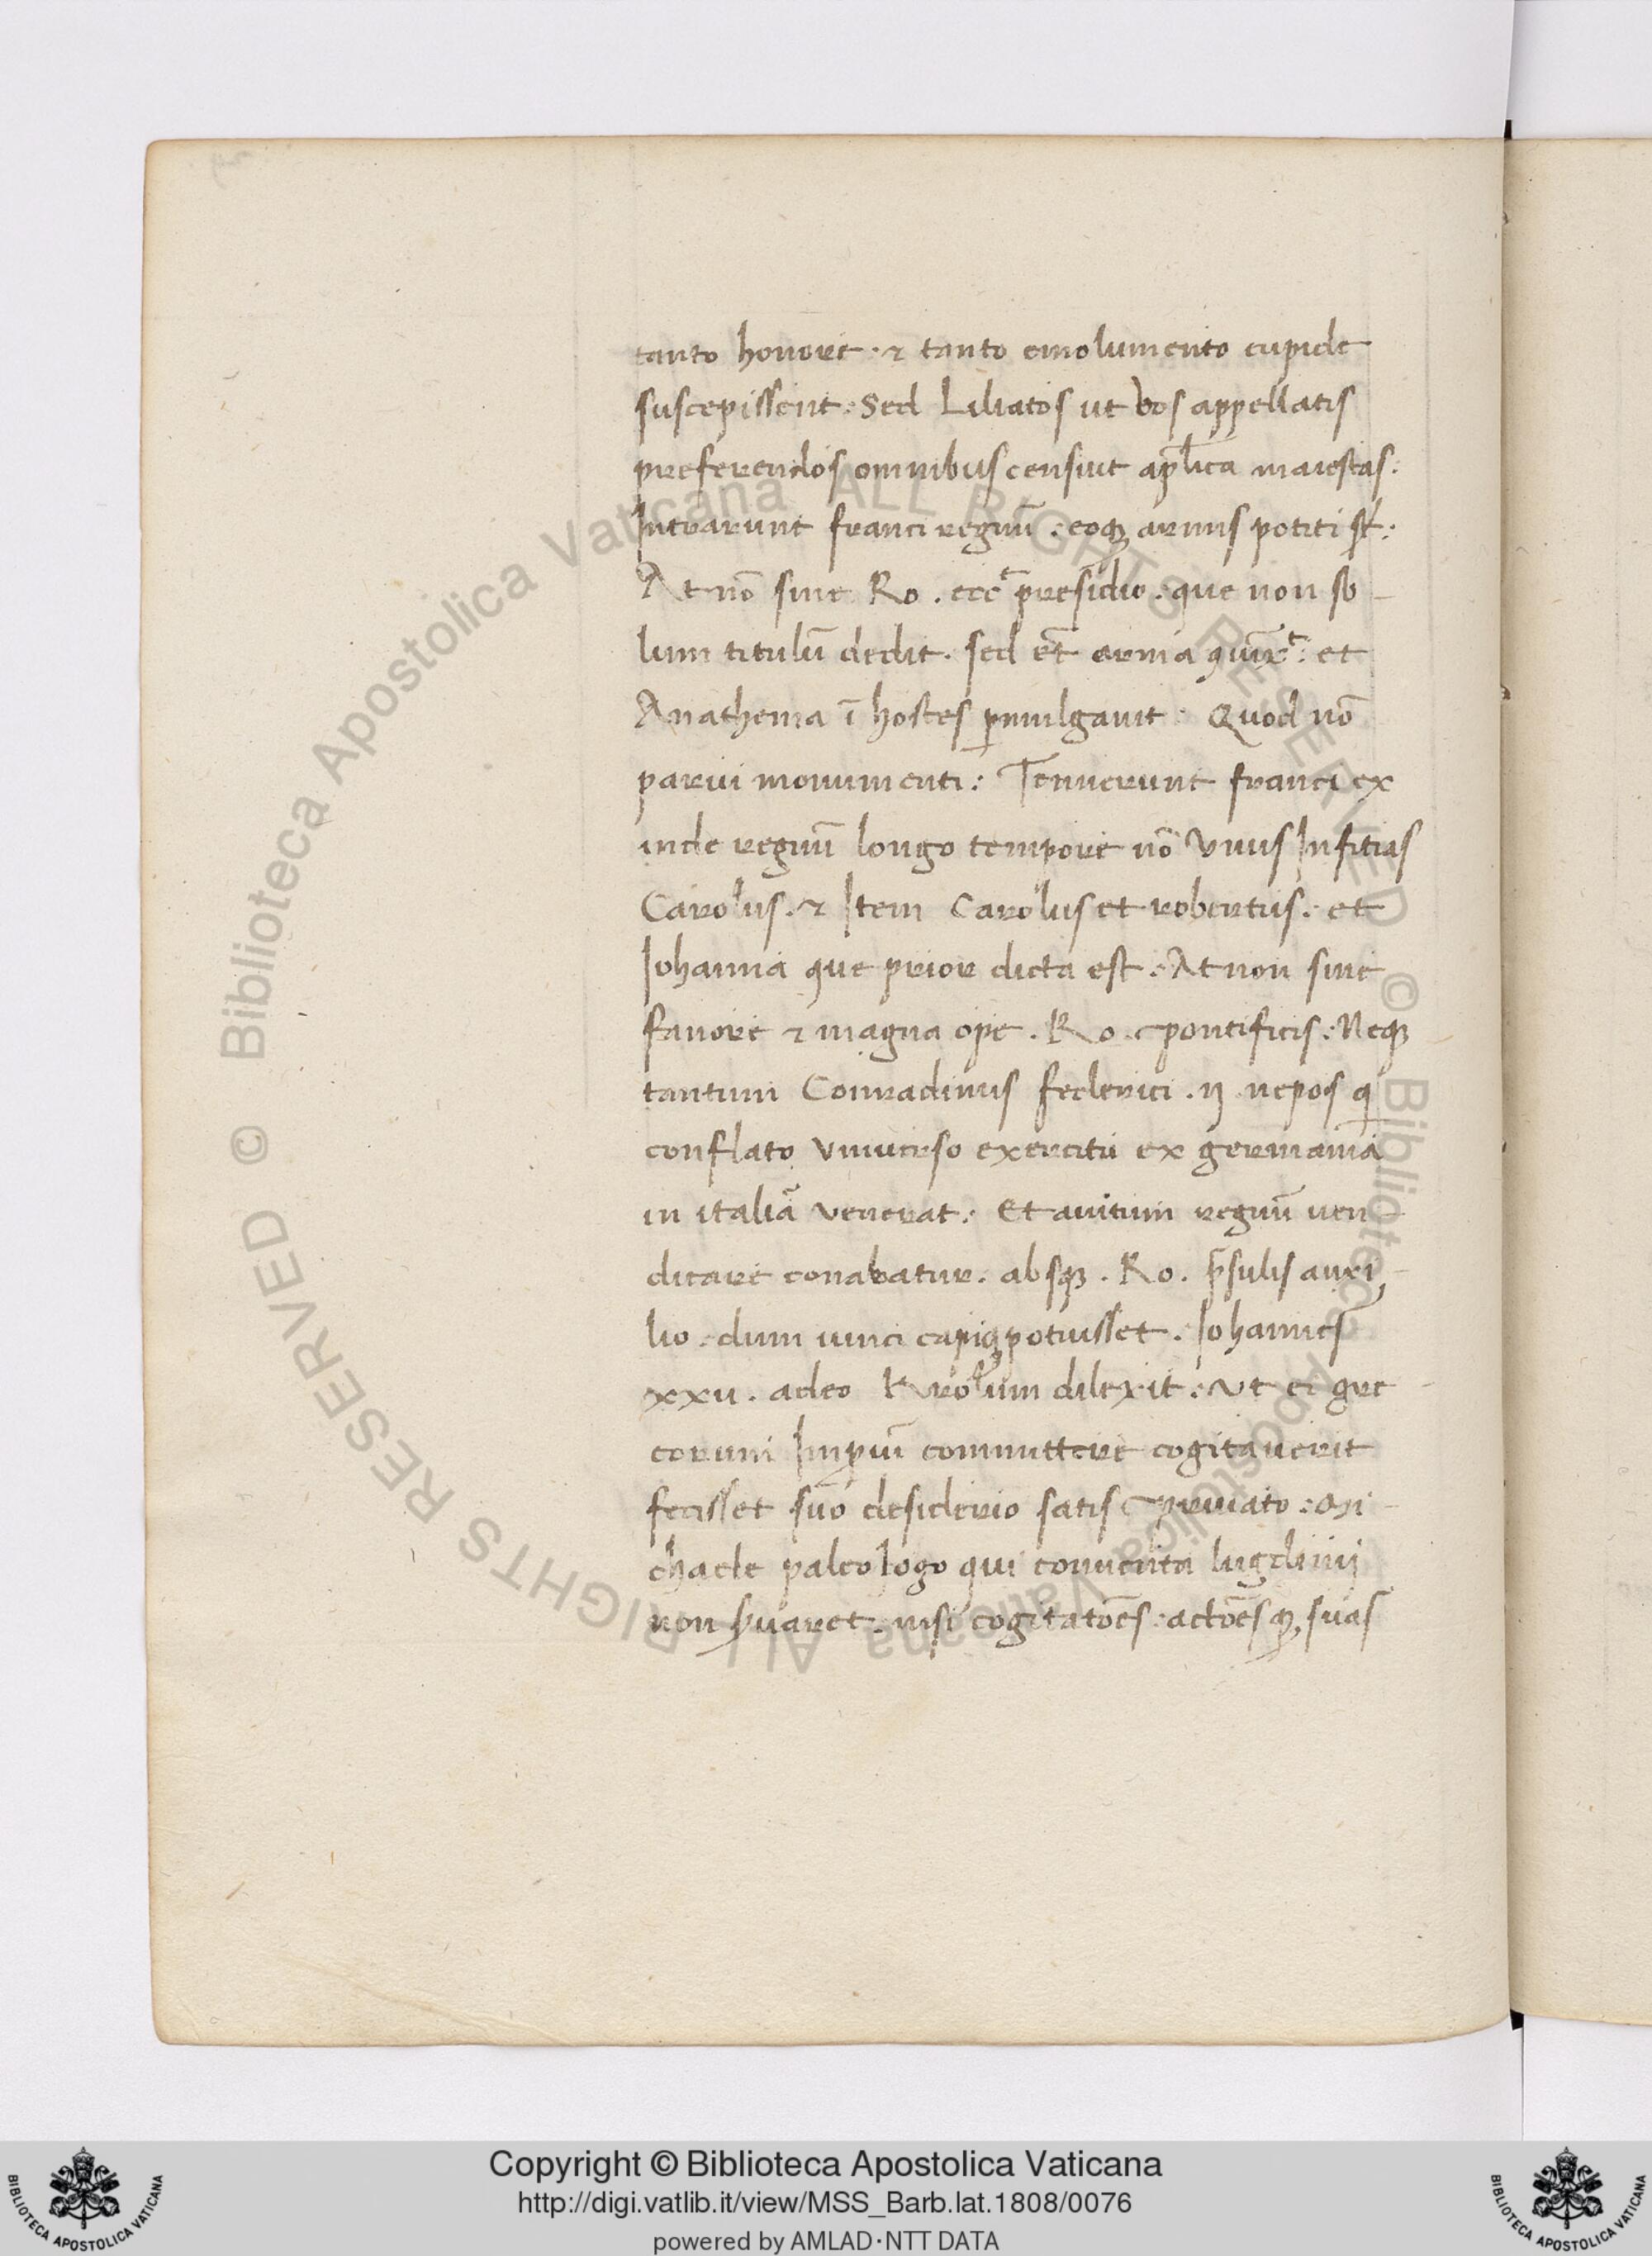 tanto honore · & tanto emolumento cupide
suscepissent: Sed Liliatos ut vos appellatis
preferendos omnibus censuit aplica maiestas:
Intrarunt franci regnū: eoqꝫ armis potiti sūt:
At nō sine Ro. ecc presidio: que non so
lum titulū dedit. sed et arma et
Anathema ī hostes promulgauit: Quod nō
parui monumenti: Tenuerunt franci ex
inde regnū longo tempore nō Unus Infitias
Carolus. & Item Carolus et robertus. et
Johanna que prior dicta est. At non sine
fauore & magna ope. Ro. pontificis: Neqꝫ
tantum Conradinus federici. ij nepos q
conflato Uniuerso exercitu ex germania
in italiā Venerat: Et auitum regnū uen
dicare conabatur. absqꝫ. Ro. p̄sulis auxi
lio. dum uinci capiqꝫ potuisset. Johannes
xxii. adeo Krolum dilexit: Ut ei gre
corum Imperiū committere cogitauerit
fecisset suo desiderio satis priuato: Mi
chaele paleologo qui conuenta lugduni
non seruaret. nisi cogitatōes: actōesqꝫ suas
Copyright © Biblioteca Apostolica Vaticana
http://digi.vatlib.it/view/MSS_Barb.lat.1808/0076
powered by AMLAD·NTT DATA
BIBLIOTECA APOSTOLICA VATICANA
BIBLIOTECA APOSTOLICA VATICANA
© Biblioteca Apostolica Vaticana ALL RIGHTS RESERVED © Biblioteca Apostolica Vaticana ALL RIGHTS RESERVED